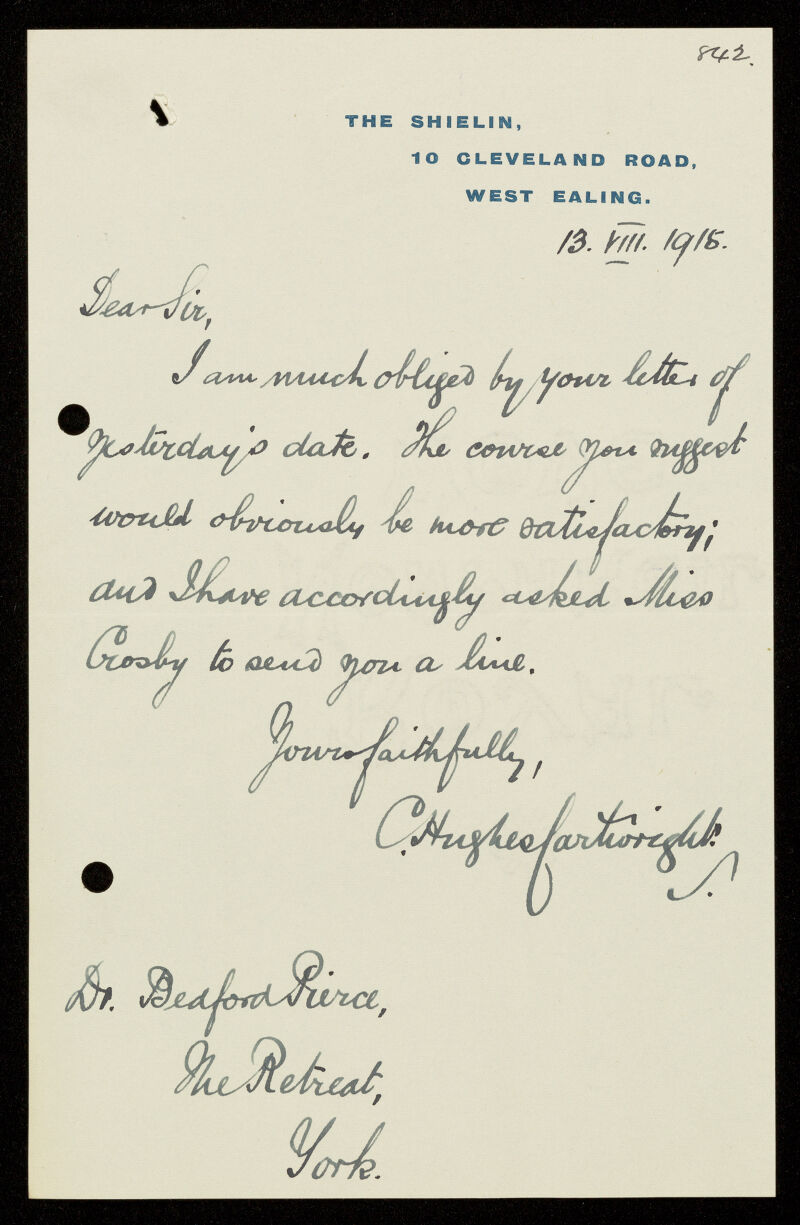 842.
THE SHIELIN,
10 CLEVELAND ROAD,
WEST EALING.
13. VIII. 1915.
Dear Sir,
I am much obliged by your letter of
yesterday's date. The course you suggest
would obviously be more satisfactory;
and I have accordingly asked Miss
Crosby to send you a line.
Yours faithfully,
C. Hughes Cartwright.
Dr. Bedford Pierce,
The Retreat,
York.